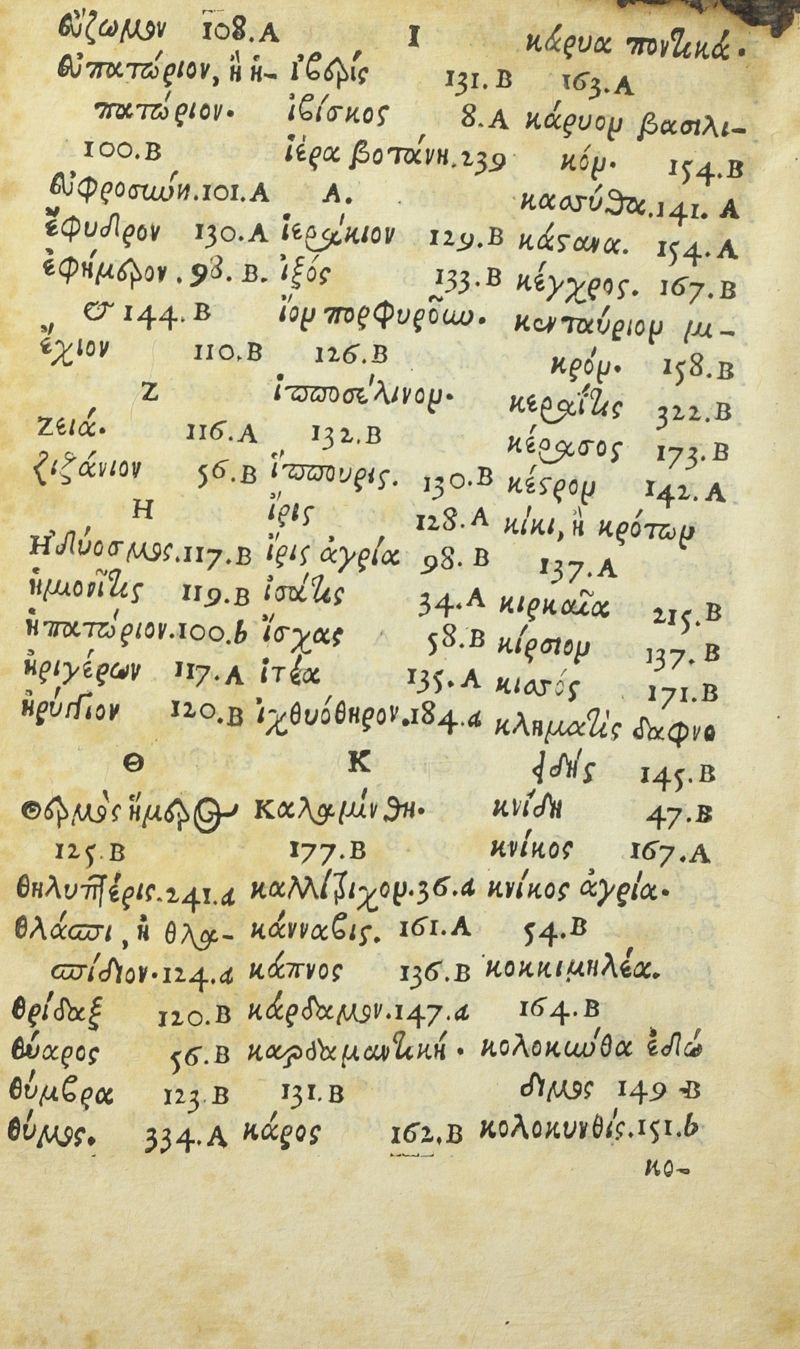 εὔζωμον 108.A
εὐπατώριον, ἢ ἡ-
πατώριον.
100.B
εὐφροσύνη.101.A
ἔφυδρον 130.A
ἐφήμερον.98.B.
& 144.B
ἔχιον 110.B
Z
Ζειά. 116.A
ζιζάνιον 56.B
H
Ηδύοσμος.117.B
ἡμιονῖτις 119.B
ἡπατώριον.100.b
ἠριγέρων 117.A
ἠρύγγιον 120.B
Θ
Θερμὸς ἥμερος
125.B
θηλυπτέρις.241.a
θλάσπι, ἢ θλα-
σπίδιον.124.a
θρίδαξ 120.B
θύαρος 56.B
θύμβρα 123.B
θύμος. 334.A
I
ἰβερίς 131.B
ἰβίσκος 8.A
ἱερα βοτάνη.239
A.
ἱεράκιον 129.B
ἰξός 133.B
ἴον πορφυροῦν.
126.B
ἱπποσέλινον.
132.B
ἵππουρις. 130.B
ἶρις 128.A
ἶρις ἀγρία 98.B
ἰσάτις 34.A
ἴσχας 58.B
ἰτέα 135.A
ἰχθυόθηρον.184.a
K
Καλαμίνθη.
177.B
καλλίτριχον.36.a
κάνναβις. 161.A
κάπνος 136.B
κάρδαμον.147.a
καρδαμαντική.
131.B
κάρος 162.B
κάρυα ποντικά.
163.A
κάρυον βασιλι-
κόν. 154.B
κασύθα.141.A
κάστανα. 154.A
κέγχρος. 167.B
κενταύριον μι-
κρόν. 158.B
κερατῖτις 322.B
κέρασος 173.B
κέστρον 142.A
κίκι, ἢ κρότων
137.A
κιρκαία 215.B
κίρσιον 137.B
κισσός 171.B
κληματὶς δαφνο
ειδής 145.B
κνίδη 47.B
κνίκος 167.A
κνίκος ἀγρία.
54.B
κοκκιμηλέα.
164.B
κολοκύνθα ἐδώ
διμος 149 B
κολοκυνθίς.151.b
κο-